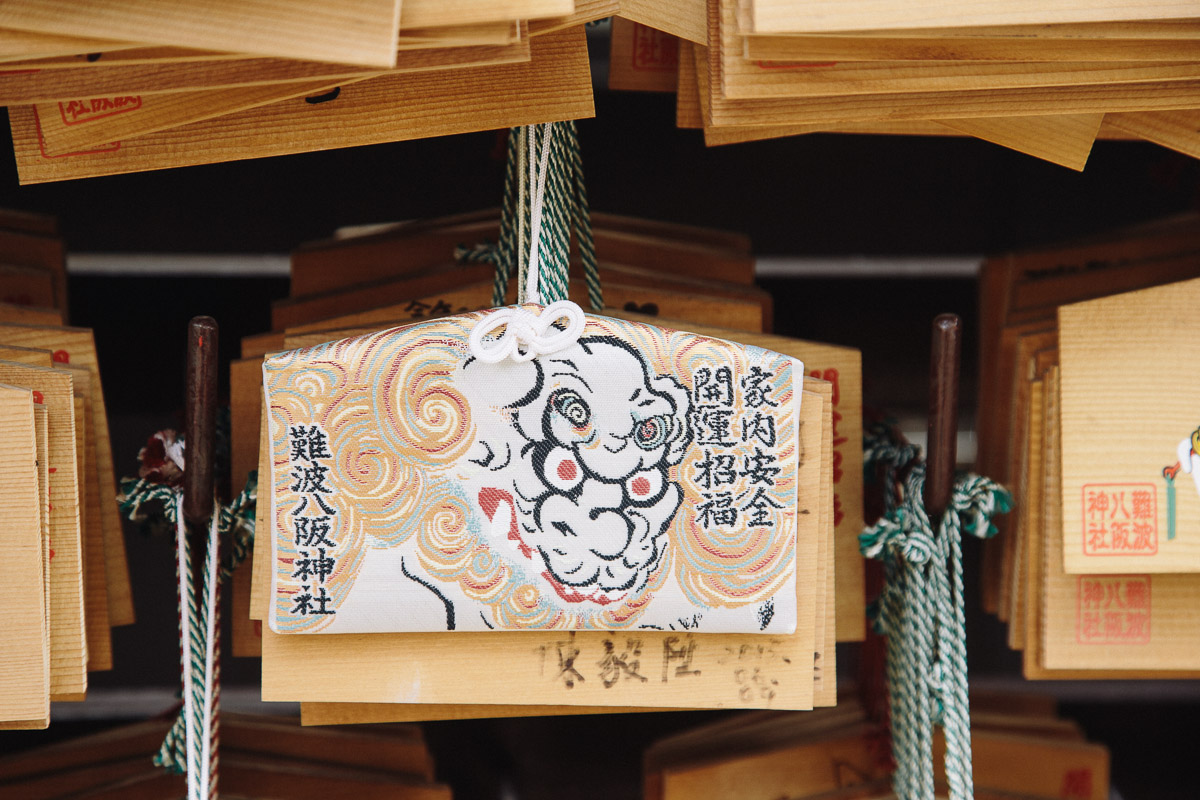 家内安全
開運招福
難波八阪神社
陳毅陞
難波
八阪
神社
難波
八阪
神社